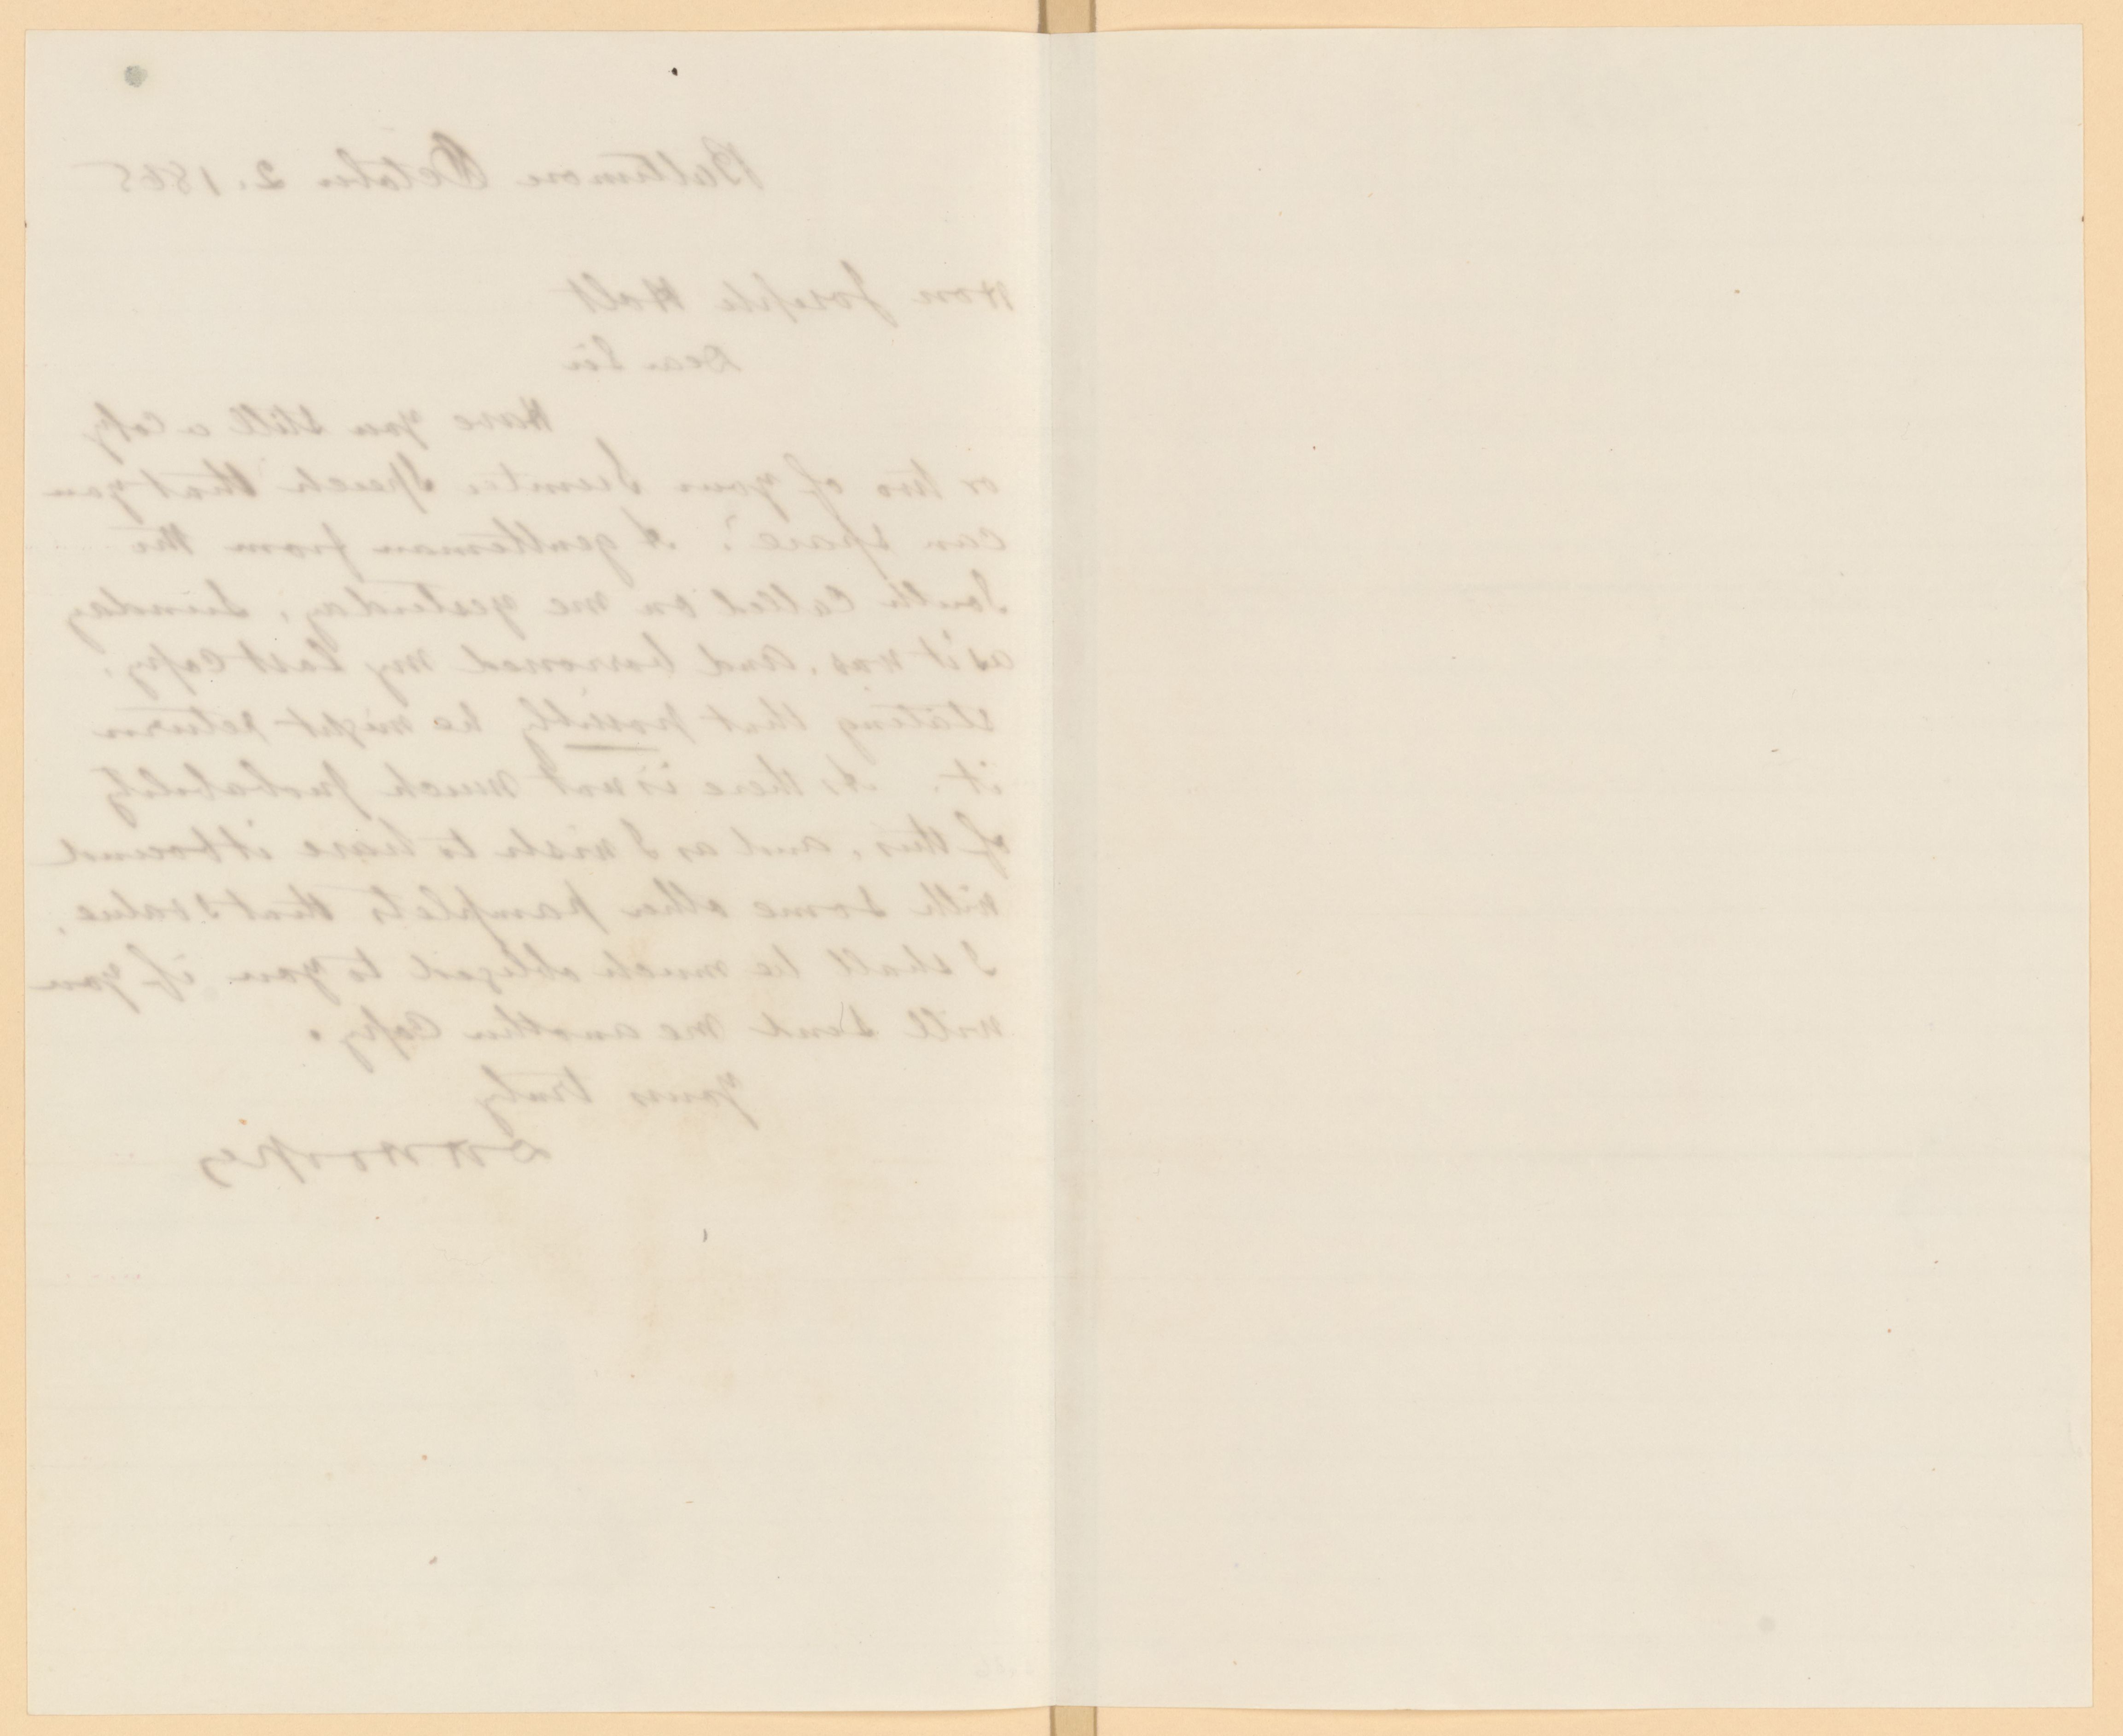 Baltimore October 2. 1865
Hon Joseph Holt
Dear Sir
Have you still a Copy
or two of your Sumter Speech that you
can spare? A gentleman from the
South called on me yesterday, Sunday
as it was, and borrowed my last Copy,
stating that possibly he might return
it. As there is not much probability
of this, and as I wish to have it bound
with some other pamplets that I value,
I shall be much obliged to you if you
will send me another Copy.
Yours truly